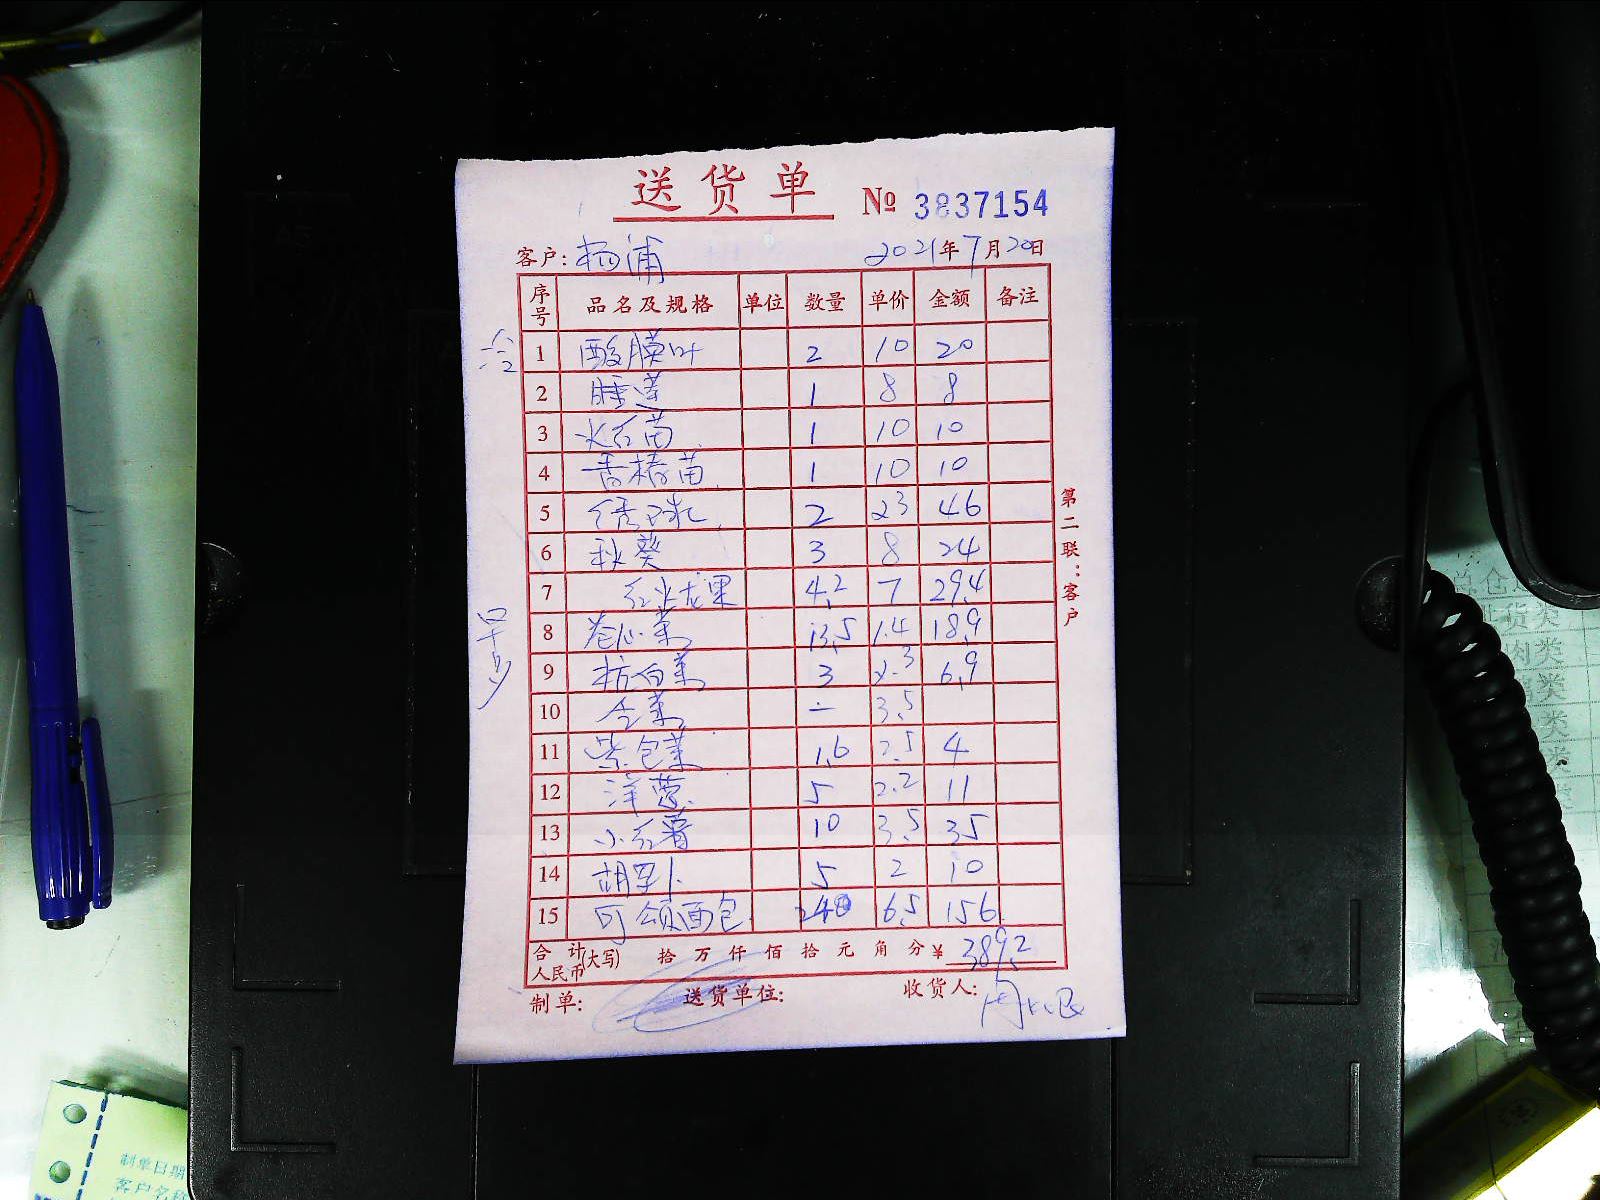 送货单 № 3837154
客户: 杨浦 2021年7月20日
序号 品名及规格 单位 数量 单价 金额 备注
冷
1 酸膜叶 2 10 20
2 睡莲 1 8 8
3 火红苗 1 10 10
4 香椿苗 1 10 10
5 绣球 2 23 46
6 秋葵 3 8 24
7 红火龙果 4.2 7 29.4
8 卷心菜 13.5 1.4 18.9
9 杭白菜 3 2.3 6.9
10 仝菜 - 3.5
11 紫包菜 1.6 2.5 4
12 洋葱 5 2.2 11
13 小红薯 10 3.5 35
14 胡罗卜 5 2 10
15 可颂面包 240 6.5 156
合计人民币(大写) 拾 万 仟 佰 拾 元 角 分 ¥ 389.2
制单: 送货单位: 收货人:
第二联:客户
总仓
货类
肉类
类
类
类
制单日期
客户名称